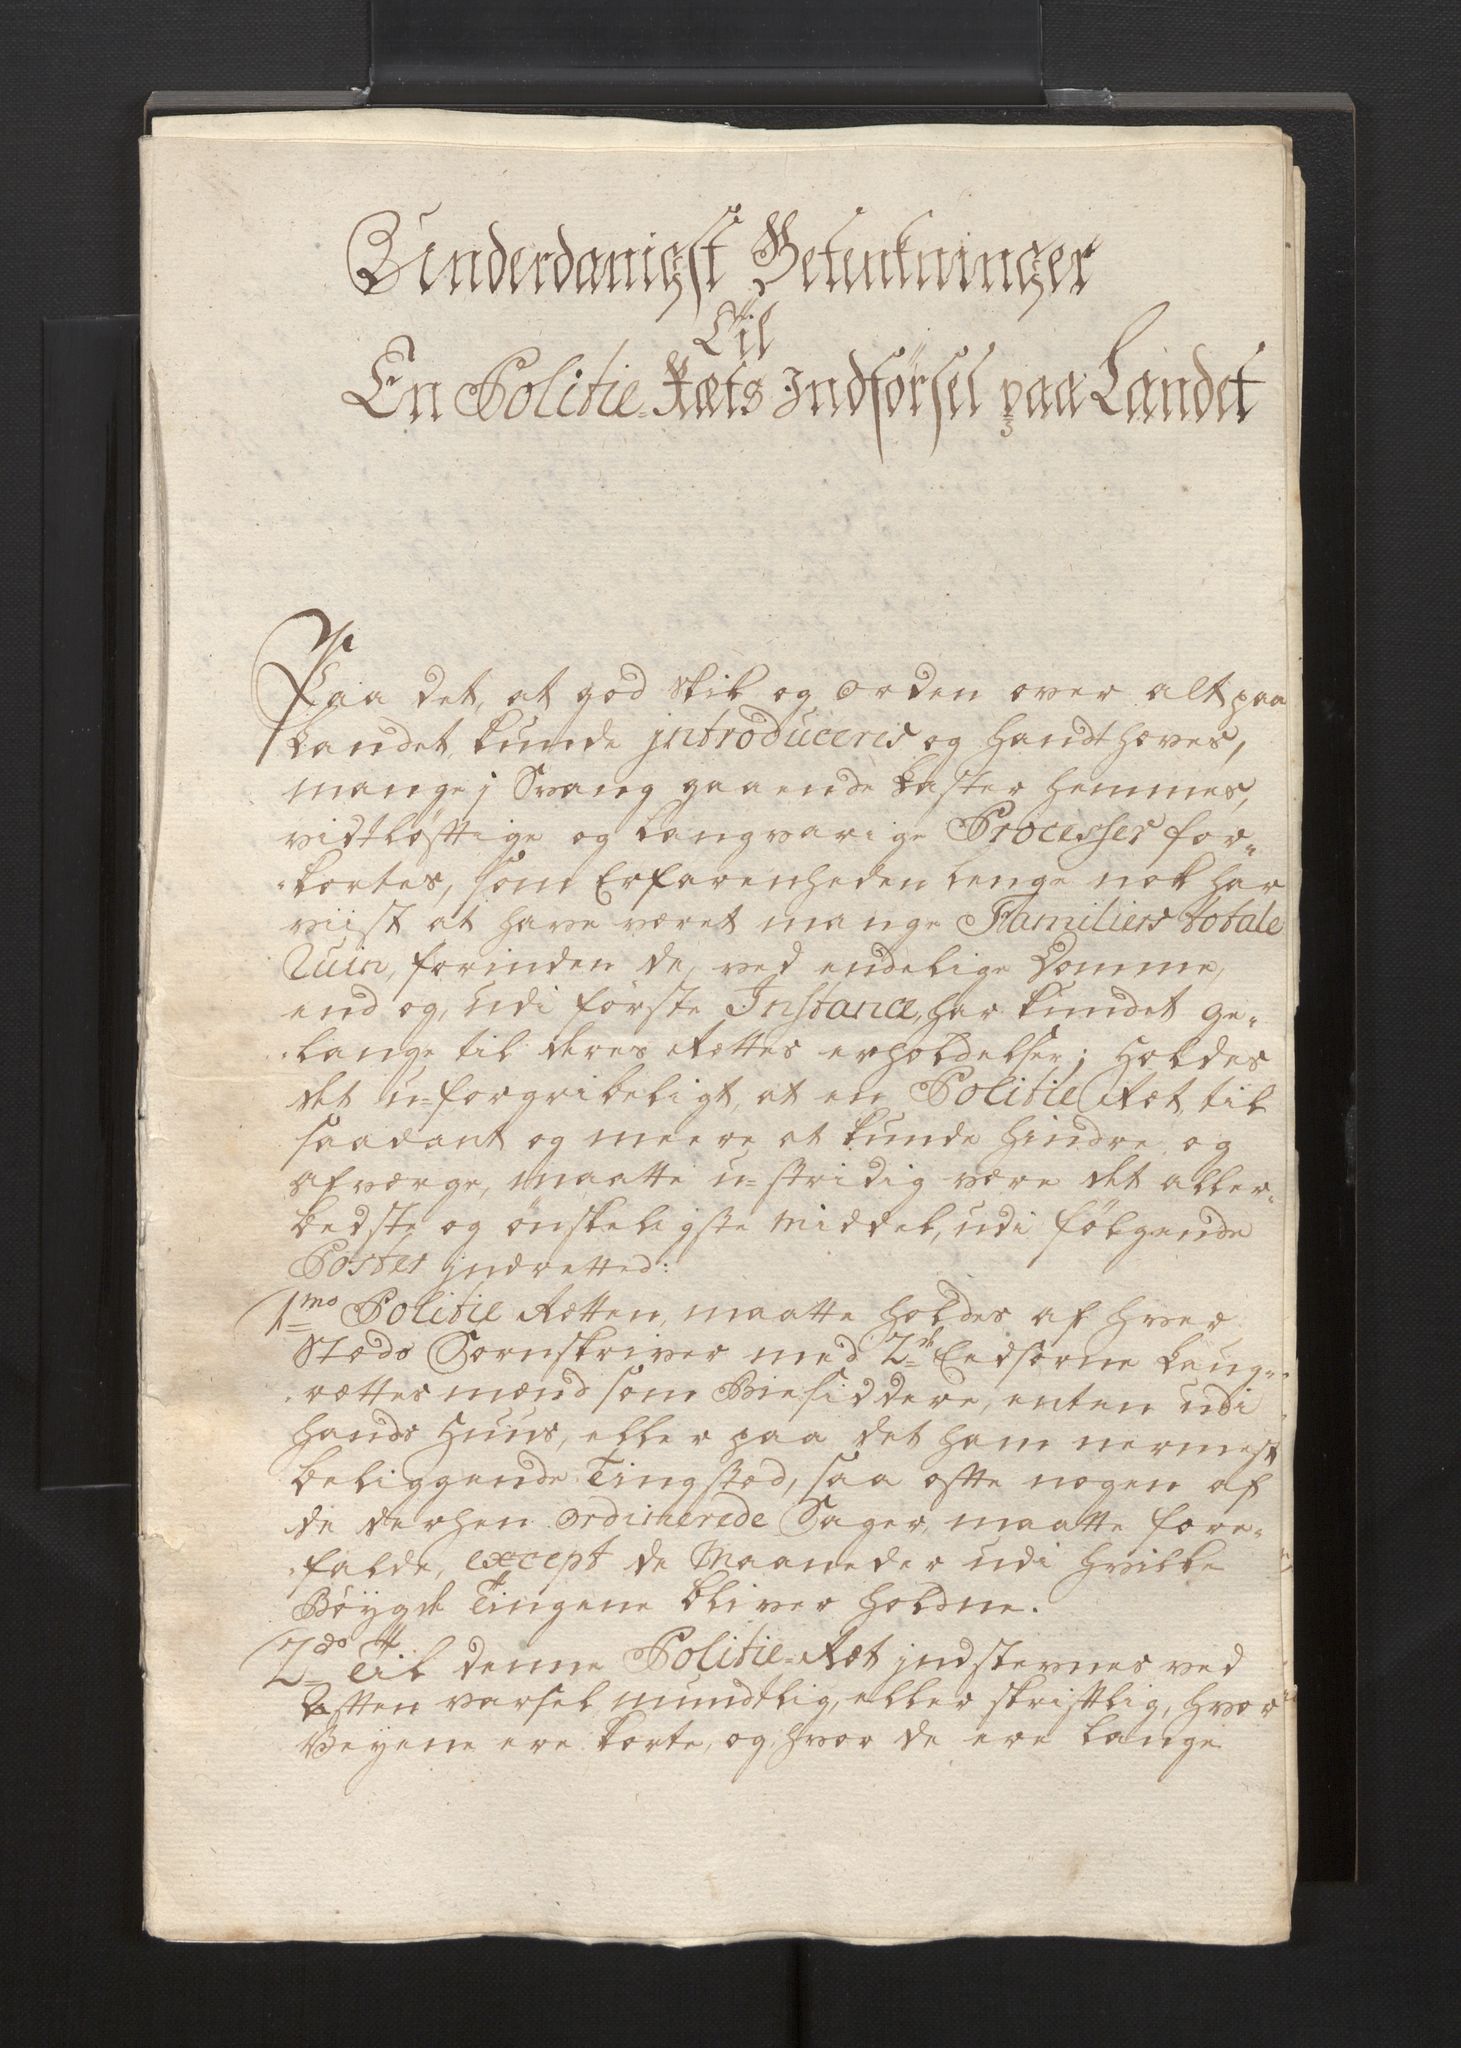 Underdanigst Betenkninger
Til
En Politie-Ræts Indførsel paa Landet
Paa det, at god skik og Orden over alt paa
Landet kunde introduceres og handthæves,
mange j Svang gaaende Laster hemmes,
vidtløftige og langvarige Processer for-
kortes, som Erfarenheden lenge nok har
viist at have været mange Familiers totale
Ruin, forinden de, ved endelige Domme,
end og, udi første Instance, har kundet ge-
lange til deres Rettes erholdelser; Holdes
det u-forgribeligt, at en Politie Ræt, til
saadant og meere at kunde hindre og
afværge, maatte u-stridig være det aller-
bedste og ønskeligste Middel, udi følgende
Poster jndretted:
1mo Politie Rætten, maatte holdes af hver
Stæds Sorenskriver med 2de Eedsorne Laug-
rættesmænd som Biesiddere, enten udi
hands Huus, eller paa det ham nermest
beliggende Tingsted, saa ofte nogen af
de derhen ordinerede Sager, maatte fore-
falde, except de Maaneder udi hvilke
Bøygde Tingene bliver holdne.
2do Til denne Politie-Ræt jndstevnes ved
Aften varsel mundtlig, eller skriftlig, hvor
Veyene ere korte, og hvor de ere lange